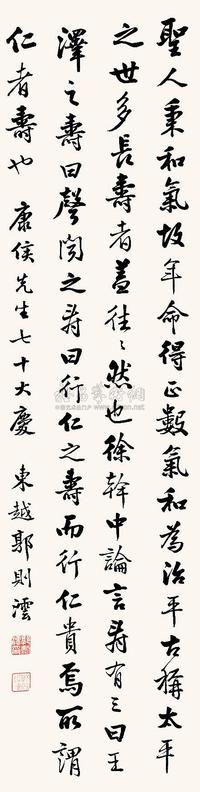 聖人秉和氣故年命得正數氣和為治平古稱太平
之世多長壽者蓋往往然也徐幹中論言壽有三曰王
澤之壽曰聲聞之壽曰行仁之壽而行仁貴焉所謂
仁者壽也 康侯先生七十大慶 東越郭則澐